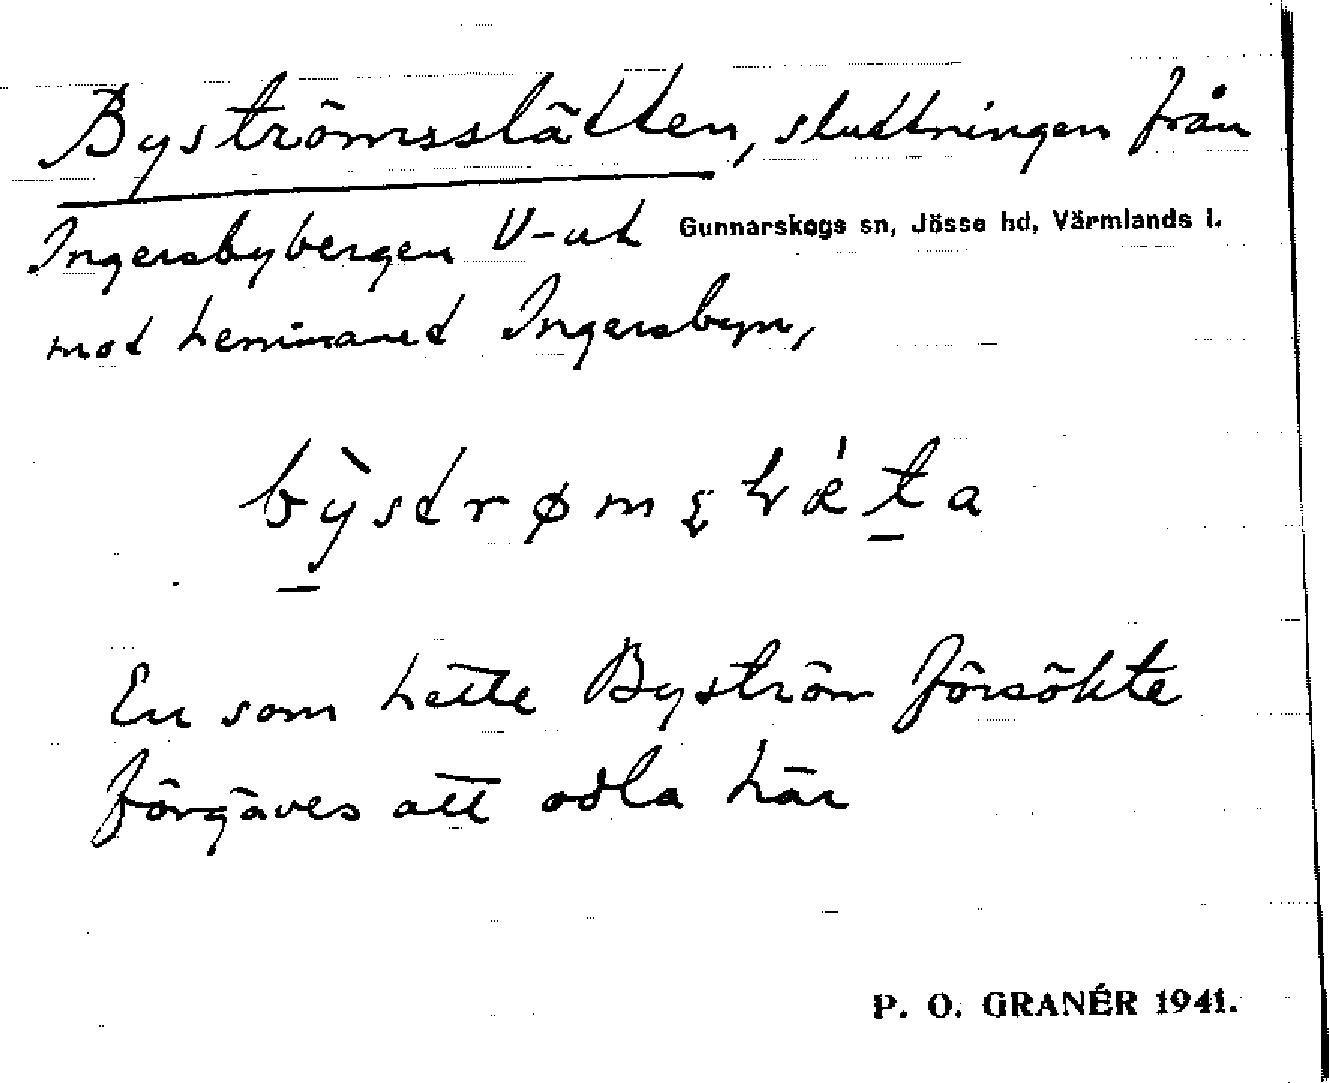 Byströmsslätten, sluttningen från
Ingersbybergen V-ut Gunnarskogs sn, Jösse hd, Värmlands l.
mot hemmanet Ingersbyn,
En som hette Byström försökte
förgäves att odla här
P. O. GRANÉR 1941.